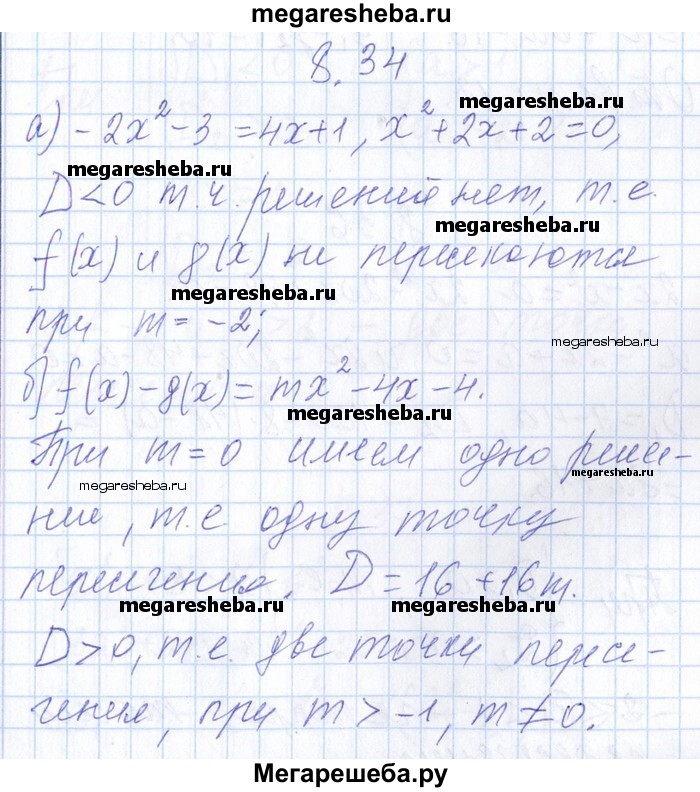 megaresheba.ru
8.34
а) -2x² - 3 = 4x + 1, x² + 2x + 2 = 0,
megaresheba.ru
megaresheba.ru
D < 0 т.ч. решений нет, т.е.
megaresheba.ru
f(x) и g(x) не пересекаются
megaresheba.ru
при m = -2;
megaresheba.ru
б) f(x) - g(x) = mx² - 4x - 4.
megaresheba.ru
При m = 0 имеем одно реше-
megaresheba.ru
megaresheba.ru
ние, т.е. одну точку
пересечения. D = 16 + 16m.
megaresheba.ru
megaresheba.ru
D > 0, т.е. две точки пересе-
чения, при m > -1, m ≠ 0.
Мегарешеба.ру